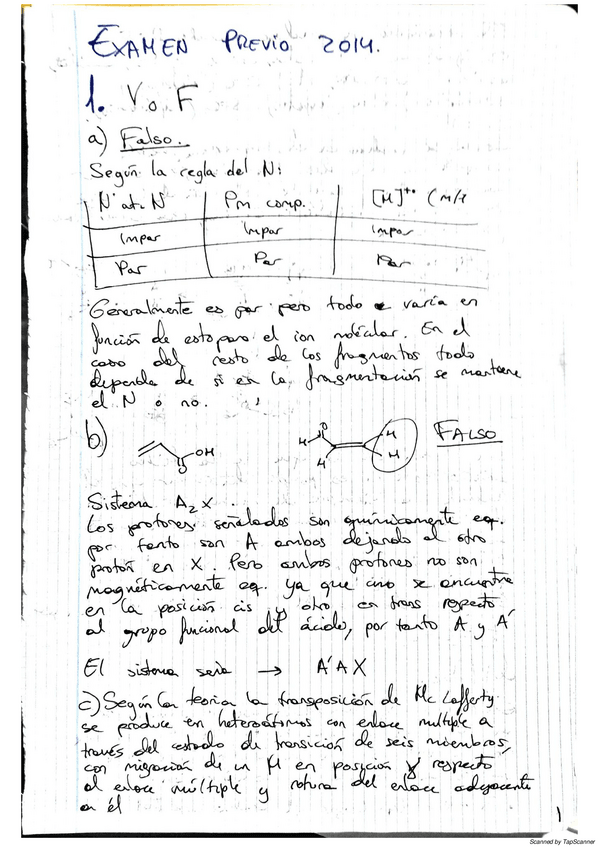 EXAMEN PREVIO 2014.
1. V o F
a) Falso.
Según la regla del N:
Nº at. N Pm comp. [M]+· (m/z
Impar Impar Impar
Par Par Par
Generalmente es par pero todo varía en
función de esto para el ion molécular. En el
caso del resto de los fragmentos todo
depende de si en la fragmentación se mantiene
el N o no.
b) OH O H H H H FALSO
O
Sistema A2X
Los protones señalados son químicamente eq.
por tanto son A ambos dejando al otro
protón en X. Pero ambos protones no son
magnéticamente eq. ya que uno se encuentra
en la posición cis y otro en trans respecto
al grupo funcional del ácido, por tanto A y A'
El sistema sería → A'AX
c) Según la teoría la transposición de Mc Lafferty
se produce en heteroátomos con enlace multiple a
través del estado de transición de seis miembros,
con migración de un H en posición γ respecto
al enlace múltiple y rotura del enlace adyacente
a él
1
Scanned by TapScanner